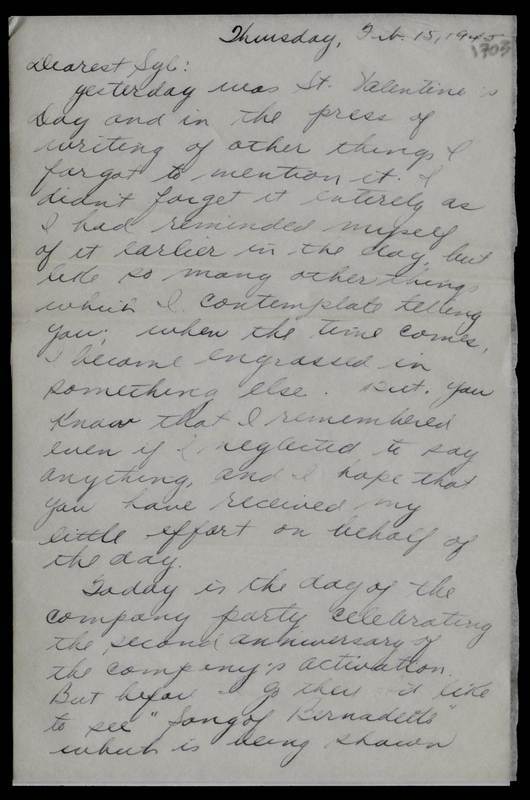 Thursday, Feb. 15, 1945
1703
Dearest Syl:
yesterday was St. Valentine's
Day and in the press of
writing of other things I
forgot to mention it. I
didn't forget it entirely as
I had reminded myself
of it earlier in the day, but
like so many other things
which I contemplate telling
you, when the time comes,
I become engrossed in
something else. But, you
know that I remembered
even if I neglected to say
anything, and I hope that
you have received my
little effort on behalf of
the day.
Today is the day of the
company party celebrating
the second anniversary of
the company's activation.
But before I go there I'd like
to see "Song of Bernadette"
which is being shown